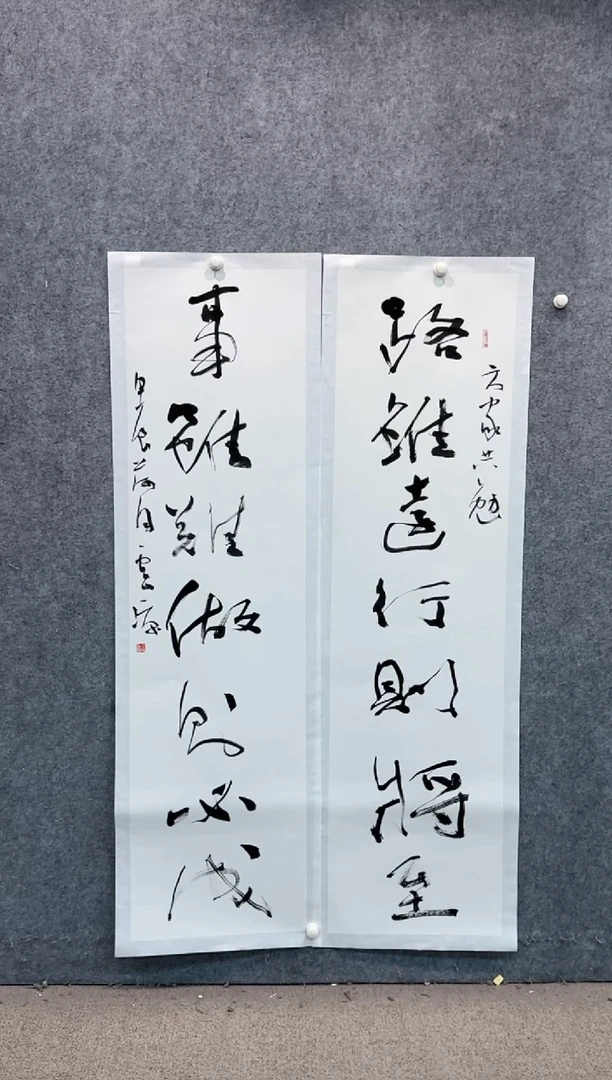 大家共勉
路雖遠行則將至
事雖難做則必成
甲辰荷月雲